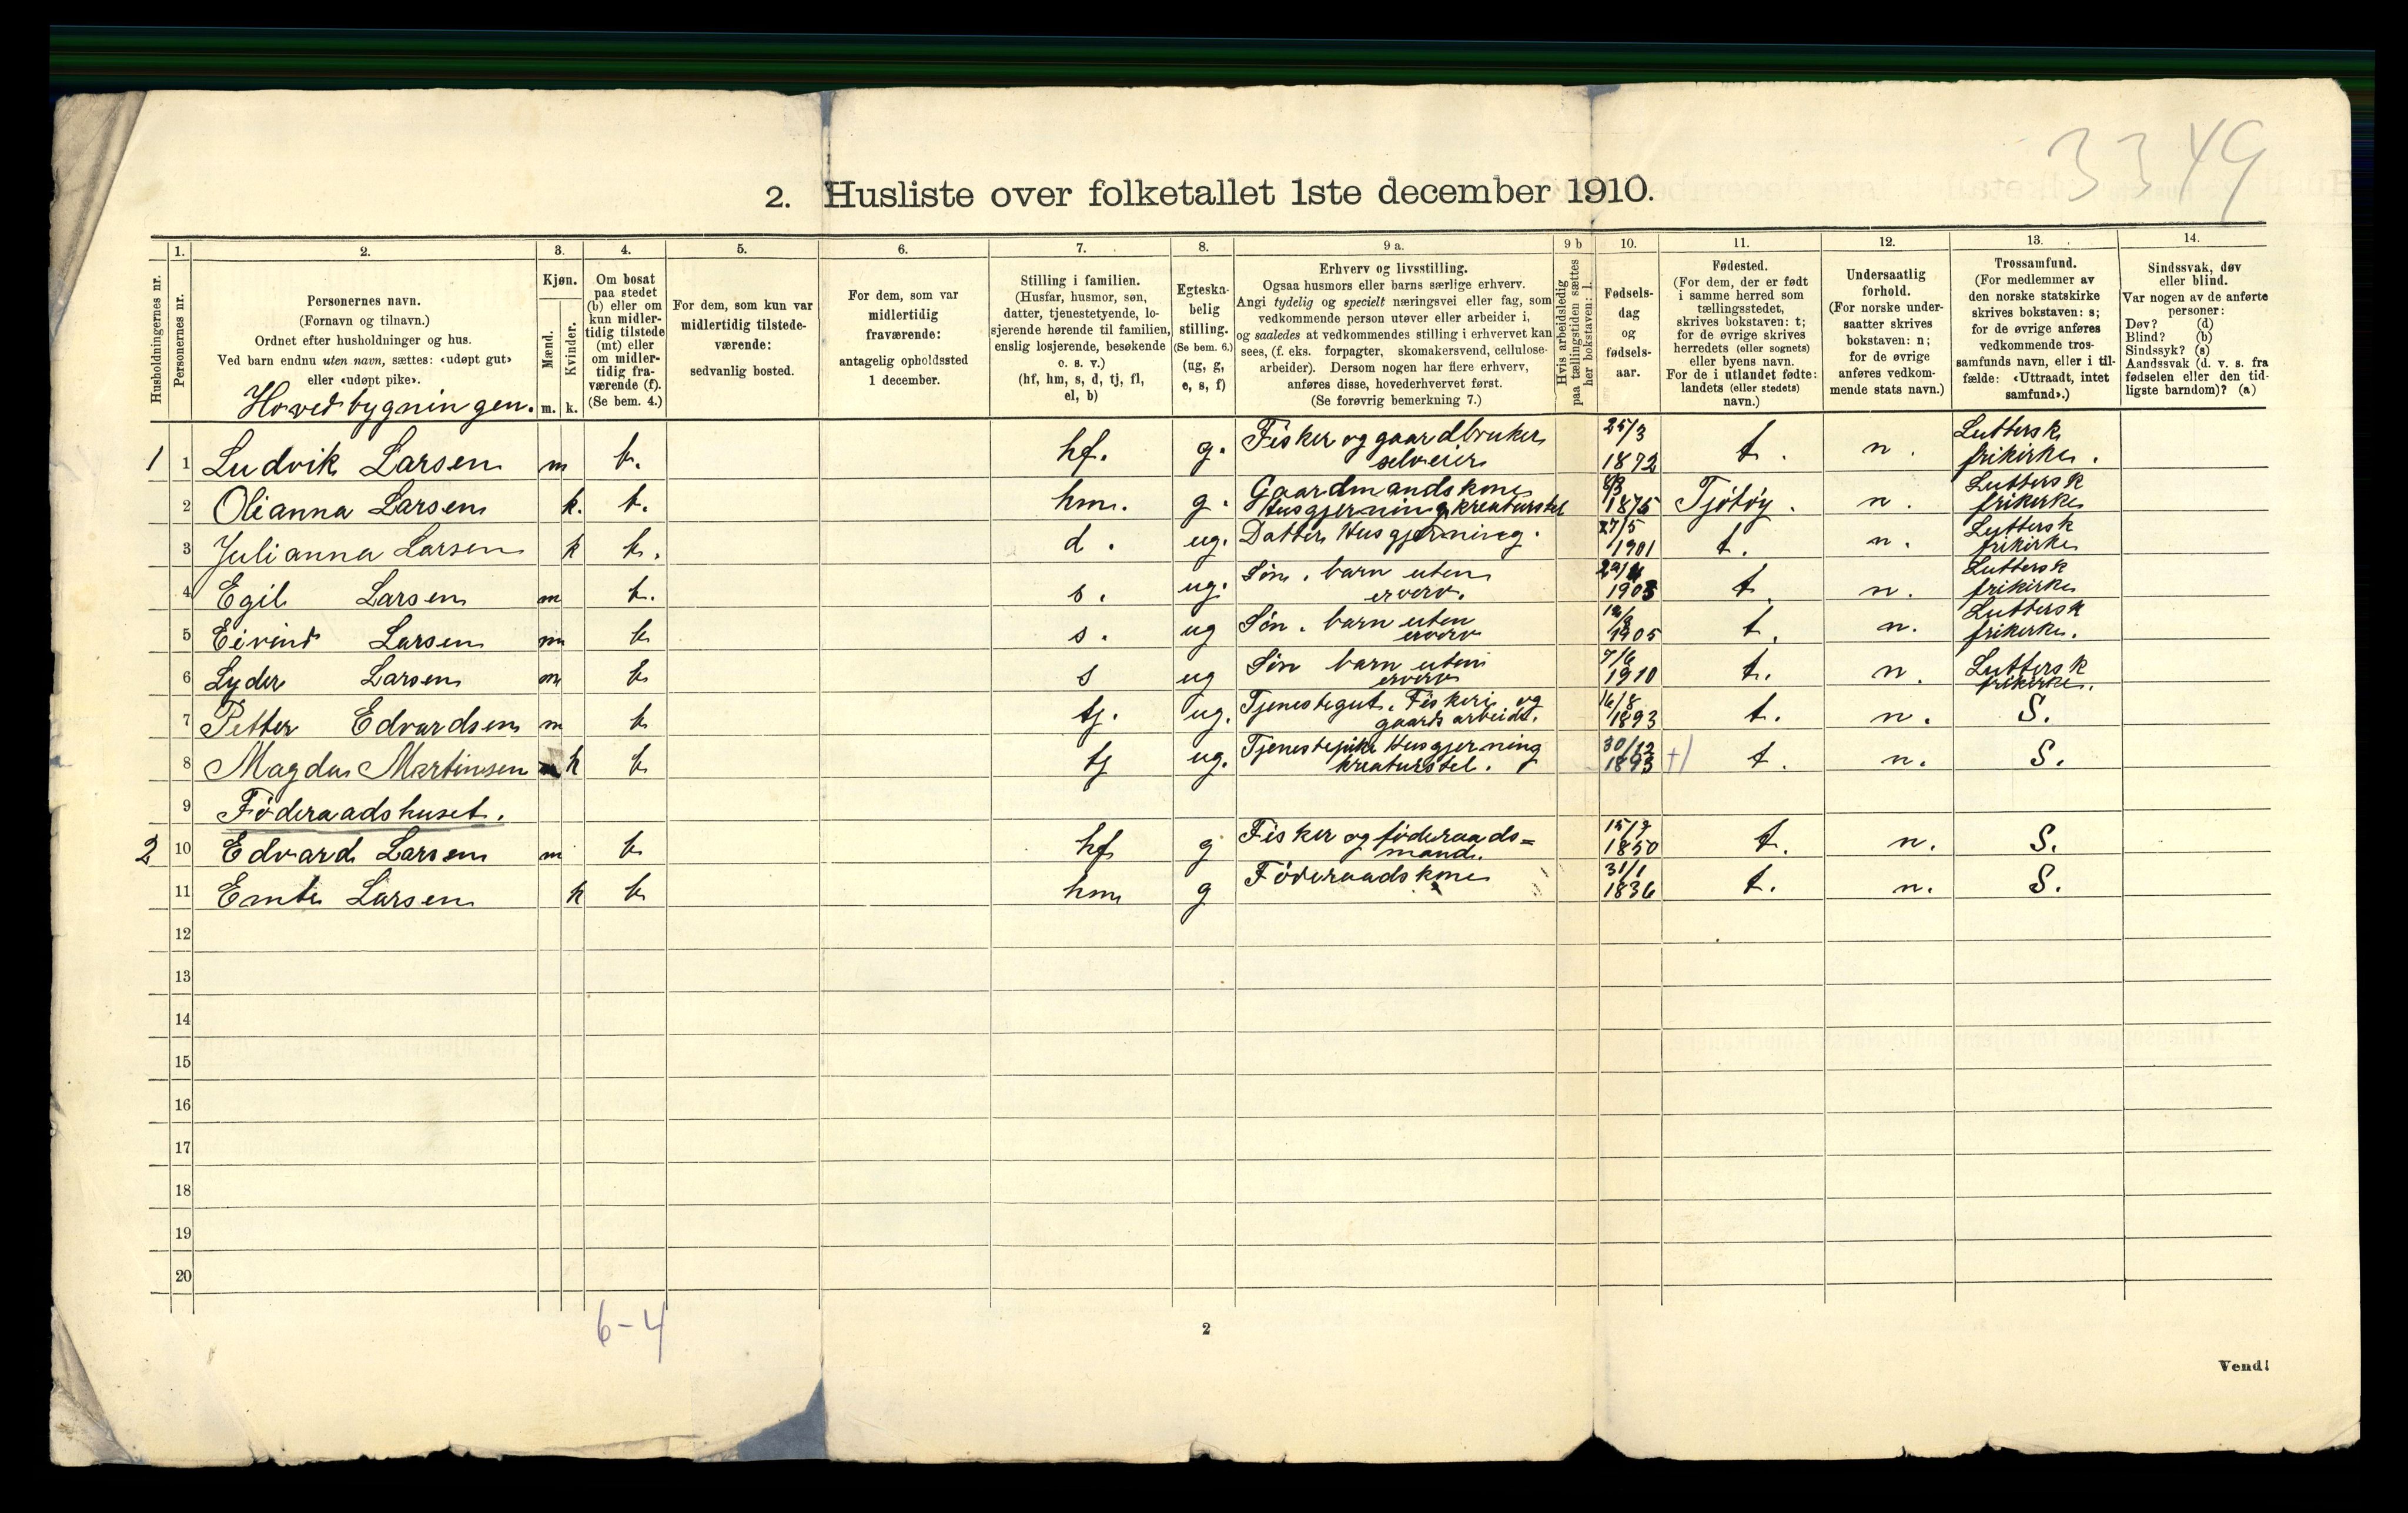 3349
2. Husliste over folketallet 1ste december 1910.
1. 2. 3. 4. 5. 6. 7. 8. 9 a. 9 b 10. 11. 12. 13. 14.
Husholdningernes nr.
Personernes nr.
Personernes navn.
(Fornavn og tilnavn.)
Ordnet efter husholdninger og hus.
Ved barn endnu uten navn, sættes: «udøpt gut»
eller «udøpt pike».
Hovedbygningen.
Kjøn.
Mænd.
Kvinder.
m. k.
Om bosat
paa stedet
(b) eller om
kun midler-
tidig tilstede
(mt) eller
om midler-
tidig fra-
værende (f).
(Se bem. 4.)
For dem, som kun var
midlertidig tilstede-
værende:
sedvanlig bosted.
For dem, som var
midlertidig
fraværende:
antagelig opholdssted
1 december.
Stilling i familien.
(Husfar, husmor, søn,
datter, tjenestetyende, lo-
sjerende hørende til familien,
enslig losjerende, besøkende
o. s. v.)
(hf, hm, s, d, tj, fl,
el, b)
Egteska-
belig
stilling.
(Se bem. 6.)
(ug, g,
e, s, f)
Erhverv og livsstilling.
Ogsaa husmors eller barns særlige erhverv.
Angi tydelig og specielt næringsvei eller fag, som
vedkommende person utøver eller arbeider i,
og saaledes at vedkommendes stilling i erhvervet kan
sees, (f. eks. forpagter, skomakersvend, cellulose-
arbeider). Dersom nogen har flere erhverv,
anføres disse, hovederhvervet først.
(Se forøvrig bemerkning 7.)
Hvis arbeidsledig
paa tællingstiden sættes
her bokstaven: l.
Fødsels-
dag
og
fødsels-
aar.
Fødested.
(For dem, der er født
i samme herred som
tællingsstedet,
skrives bokstaven: t;
for de øvrige skrives
herredets (eller sognets)
eller byens navn.
For de i utlandet fødte:
landets (eller stedets)
navn.)
Undersaatlig
forhold.
(For norske under-
saatter skrives
bokstaven: n;
for de øvrige
anføres vedkom-
mende stats navn.)
Trossamfund.
(For medlemmer av
den norske statskirke
skrives bokstaven: s;
for de øvrige anføres
vedkommende tros-
samfunds navn, eller i til-
fælde: «Uttraadt, intet
samfund».)
Sindssvak, døv
eller blind.
Var nogen av de anførte
personer:
Døv? (d)
Blind? (b)
Sindssyk? (s)
Aandssvak (d. v. s. fra
fødselen eller den tid-
ligste barndom)? (a)
1 1 Ludvik Larsen m b. hf. g. Fisker og gaardbruker selveier 25/3 1872 t. n. Luttersk frikirke.
2 Olianna Larsen k. b. hm. g. Gaardmandskone Husgjerning kreaturstel 1875 Tjötöy. n. Luttersk frikirke
3 Julianna Larsen k b. d. ug. Datter Husgjerning. 27/5 1901 t. n. Luttersk frikirke
4 Egil Larsen m b. s. ug. Søn. barn uten erverv. 1903 t. n. Luttersk frikirke
5 Eivind Larsen m b s. ug Søn. barn uten erverv 1905 t. n. Luttersk frikirke.
6 Lyder Larsen m b s ug Søn barn uten erverv 7/6 1910 t. n. Luttersk frikirke.
7 Petter Edvardsen m b tj. ug. Tjenestegut. Fiskeri og gaards arbeide. 16/8 1893 t. n. S.
8 Magda Martinsen k b tj ug. Tjenestepike Husgjerning kreaturstel. 30/12 1893 t. n. S.
9 Føderaadshuset.
2 10 Edvard Larsen m b hf g Fisker og føderaads= mand. 15/7 1850 t. n. S.
11 Larsen k b hm g Føderaadskone 31/1 1836 t. n. S.
12
13
14
15
16
17
18
19
20
6-4
2
Vend!